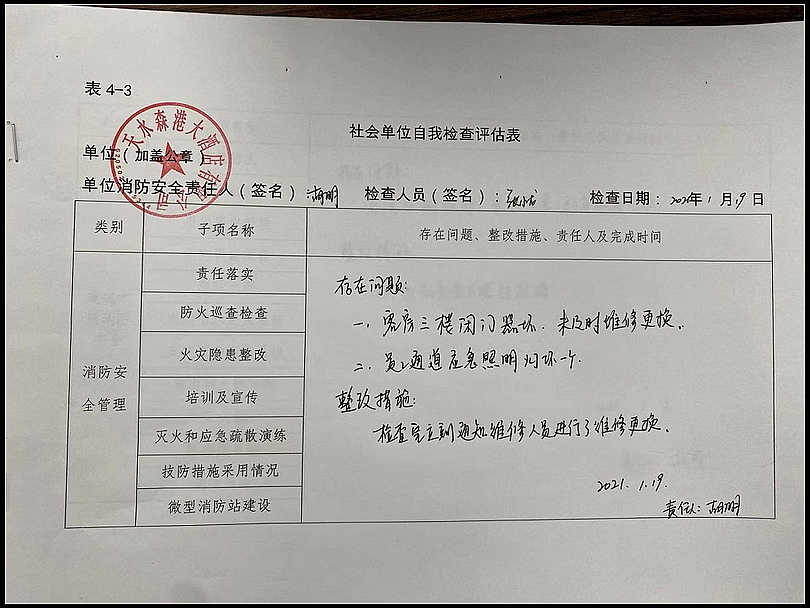 表 4-3
社会单位自我检查评估表
天水森港大酒店有限公司
单位（加盖公章）
单位消防安全责任人（签名）:胡明 检查人员（签名）: 检查日期: 年 1 月 19 日
类别 子项名称 存在问题、整改措施、责任人及完成时间
消防安全管理
责任落实
防火巡查检查
火灾隐患整改
培训及宣传
灭火和应急疏散演练
技防措施采用情况
微型消防站建设
存在问题:
一、客房三楼闭门器坏.未及时维修更换.
二、员工通道应急照明灯坏一个.
整改措施:
检查完立刻通知维修人员进行了维修更换.
2021.1.19.
责任人:胡明